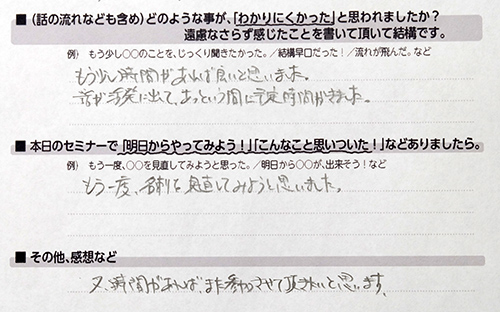 ■ (話の流れなども含め)どのような事が、「わかりにくかった」と思われましたか?
遠慮なさらず感じたことを書いて頂いて結構です。
例) もう少し○○のことを、じっくり聞きたかった。／結構早口だった!／流れが飛んだ。など
もう少し時間があれば良いと思いました。
話が活発に出て、あっという間に予定時間がきました。
■ 本日のセミナーで「明日からやってみよう!」「こんなこと思いついた!」などありましたら。
例) もう一度、○○を見直してみようと思った。／明日から○○が、出来そう!など
もう一度、名刺を見直してみようと思いました。
■ その他、感想など
又、時間があれば、また参加させて頂きたいと思います。